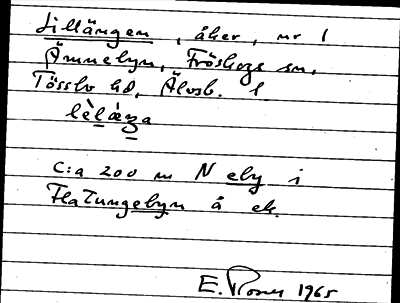 Lillängen, åker, nr 1
Ämnebyn, Fröskogs sn,
Tössbo hd, Älvsb. l.
lèlæŋa
C:a 200 m N eby i
Flatungebyn å ek.
E. 1965